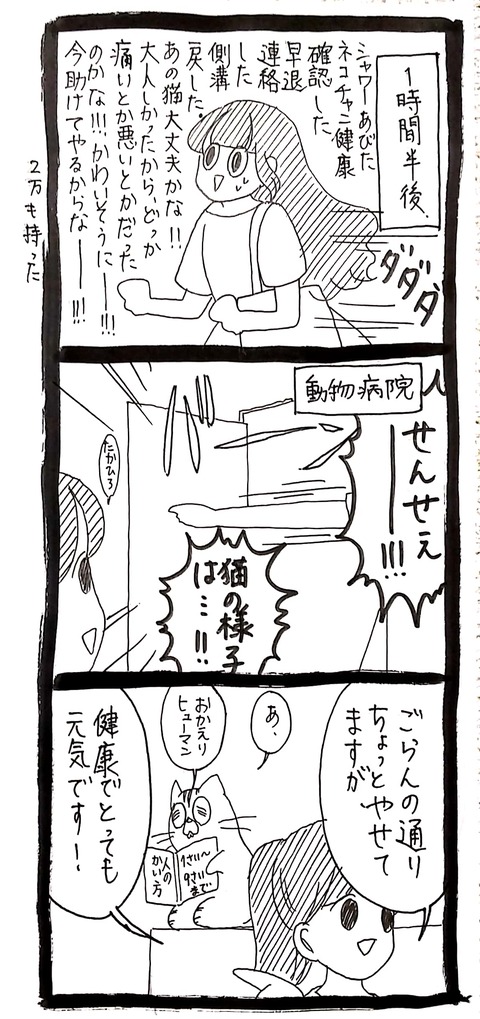 1時間半後、
シャワーあびた
ネコチャン健康
確認した
早退
連絡
した
側溝
戻した。
あの猫大丈夫かな!!
大人しかったから、どっか
痛いとか悪いとかだった
のかな!!!かわいそうに――!!!
今助けてやるからな――!!!
ダダダダ
2万も持った
動物病院
せんせぇ
――!!!
たかひろ
猫の様子
は…!!
ごらんの通り
ちょっとやせて
ますが
あ、
おかえり
ヒューマン
1さい〜
9さい
まで
人の
かい方
健康でとっても
元気です!